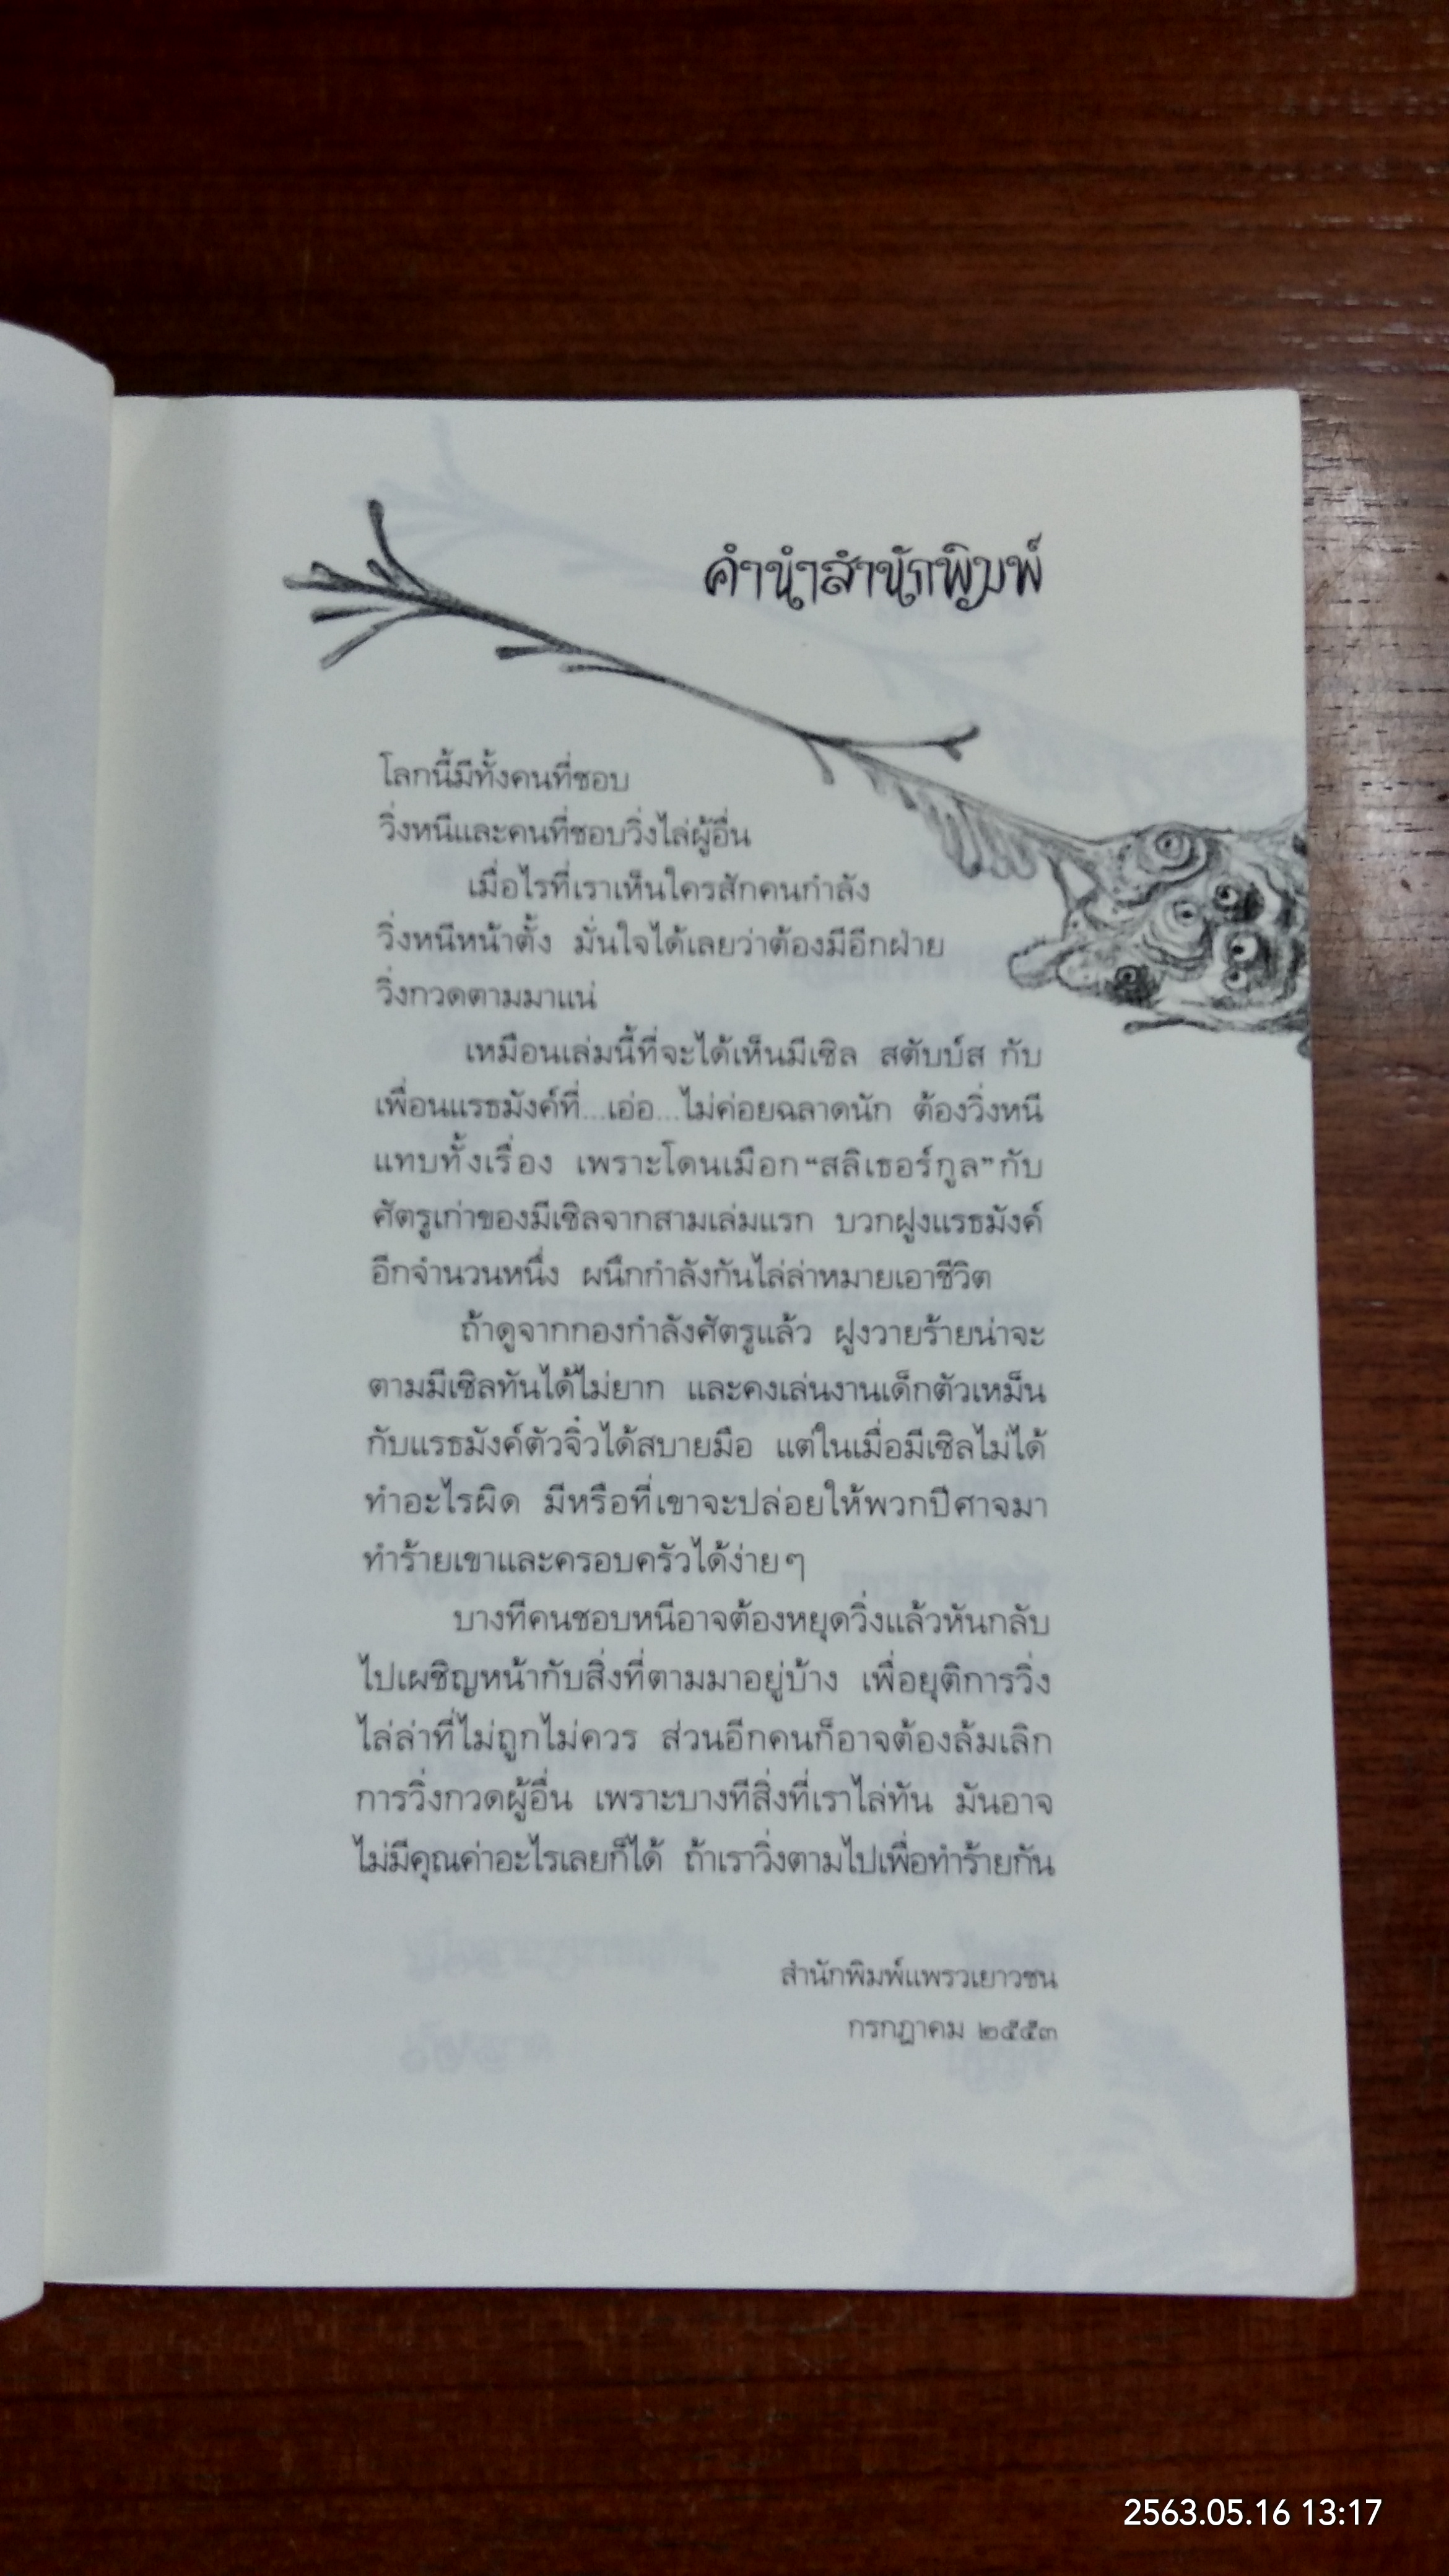 คำนำสำนักพิมพ์
โลกนี้มีทั้งคนที่ชอบ
วิ่งหนีและคนที่ชอบวิ่งไล่ผู้อื่น
เมื่อไรที่เราเห็นใครสักคนกำลัง
วิ่งหนีหน้าตั้ง มั่นใจได้เลยว่าต้องมีอีกฝ่าย
วิ่งกวดตามมาแน่
เหมือนเล่มนี้ที่จะได้เห็นมีเชิล สตับบ์ส กับ
เพื่อนแรธมังค์ที่...เอ่อ...ไม่ค่อยฉลาดนัก ต้องวิ่งหนี
แทบทั้งเรื่อง เพราะโดนเมือก“สลิเธอร์กูล”กับ
ศัตรูเก่าของมีเชิลจากสามเล่มแรก บวกฝูงแรธมังค์
อีกจำนวนหนึ่ง ผนึกกำลังกันไล่ล่าหมายเอาชีวิต
ถ้าดูจากกองกำลังศัตรูแล้ว ฝูงวายร้ายน่าจะ
ตามมีเชิลทันได้ไม่ยาก และคงเล่นงานเด็กตัวเหม็น
กับแรธมังค์ตัวจิ๋วได้สบายมือ แต่ในเมื่อมีเชิลไม่ได้
ทำอะไรผิด มีหรือที่เขาจะปล่อยให้พวกปีศาจมา
ทำร้ายเขาและครอบครัวได้ง่ายๆ
บางทีคนชอบหนีอาจต้องหยุดวิ่งแล้วหันกลับ
ไปเผชิญหน้ากับสิ่งที่ตามมาอยู่บ้าง เพื่อยุติการวิ่ง
ไล่ล่าที่ไม่ถูกไม่ควร ส่วนอีกคนก็อาจต้องล้มเลิก
การวิ่งกวดผู้อื่น เพราะบางทีสิ่งที่เราไล่ทัน มันอาจ
ไม่มีคุณค่าอะไรเลยก็ได้ ถ้าเราวิ่งตามไปเพื่อทำร้ายกัน
สำนักพิมพ์แพรวเยาวชน
กรกฎาคม ๒๕๕๓
2563.05.16 13:17